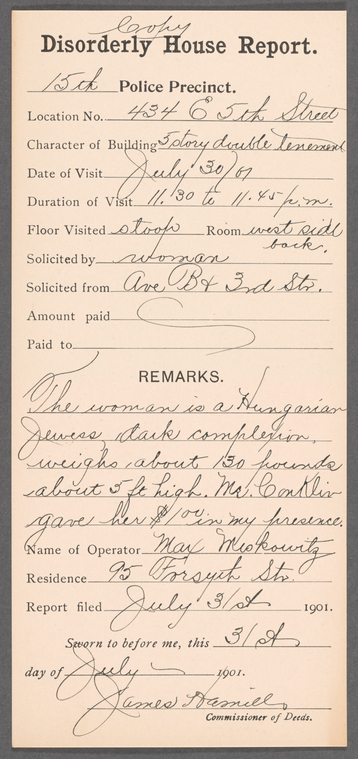 Copy
Disorderly House Report.
15th Police Precinct.
Location No. 434 E 5th Street
Character of Building 5 story double tenement
Date of Visit July 30/01
Duration of Visit 11.30 to 11.45 p.m.
Floor Visited stoop Room west side
back.
Solicited by woman
Solicited from Ave B & 3rd Str.
Amount paid
Paid to
REMARKS.
The woman is a Hungarian
Jewess, dark complexion,
weighs about 130 pounds
about 5 ft high. Mr. Conklin
gave her $1.00 in my presence.
Name of Operator Max Moskowitz
Residence 95 Forsyth Str.
Report filed July 31st 1901.
Sworn to before me, this 31st
day of July 1901.
James Hamill
Commissioner of Deeds.